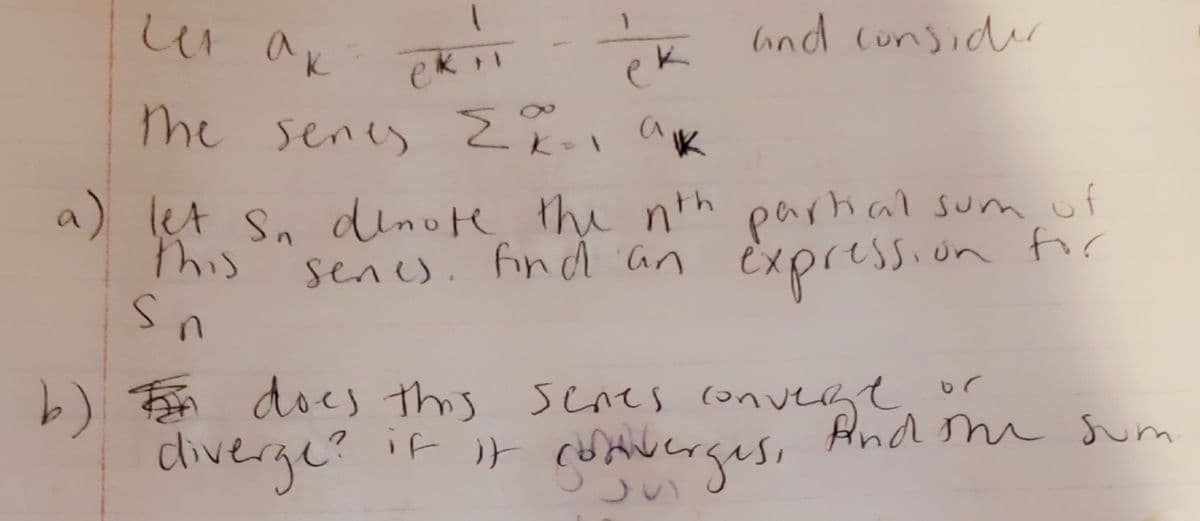 Let a_k = 1/(e^{k+1}) - 1/(e^k) and consider
the series Σ^∞_{k=1} a_k
a) let S_n denote the nth partial sum of
this series. find an expression for
S_n
b) does this series converge or
diverge? if it converges, find the sum.